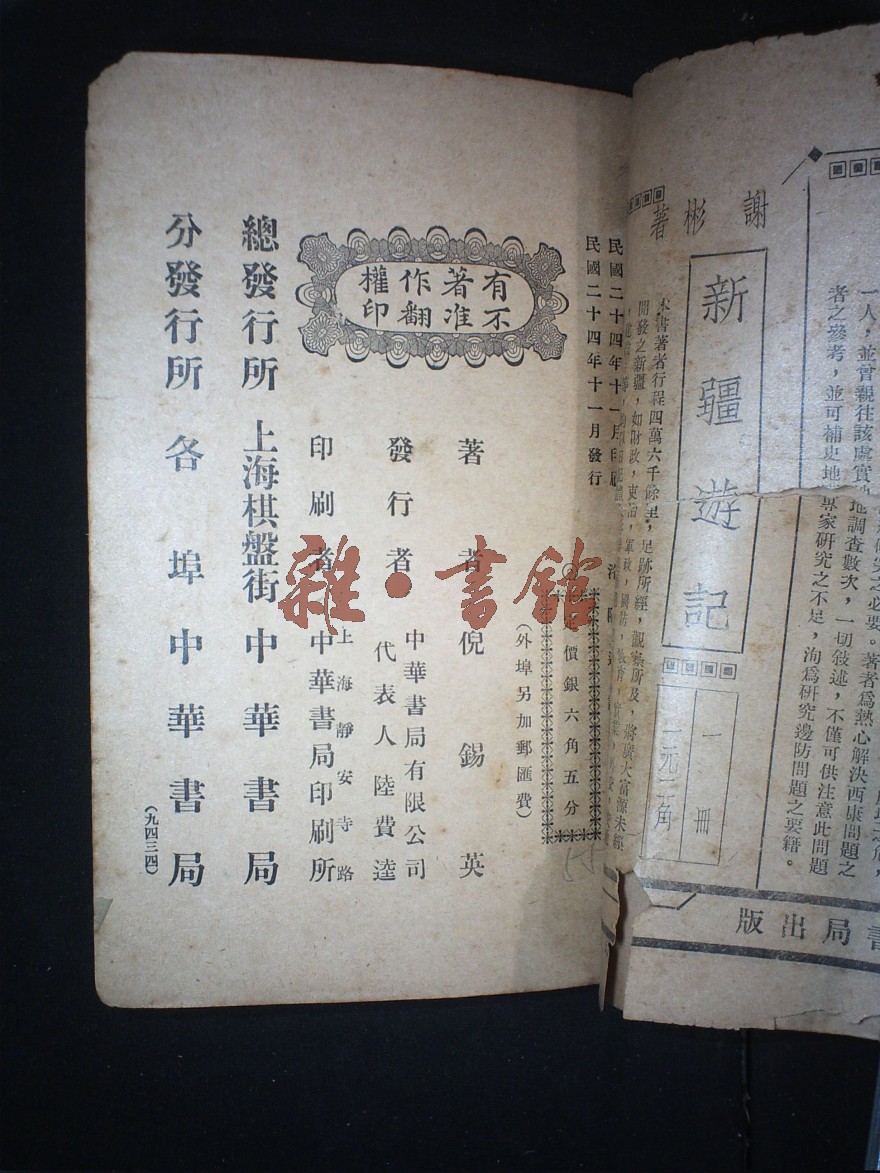 一人，並曾親往該處實
之必要。著者爲熱心解決西康問題之
者之參考，並可補史地
專家研究之不足，洵爲研究邊防問題之要籍。
地調查數次，一切敍述，不僅可供注意此問題
謝彬著
新疆遊記
一冊
一元二角
本書著者行程四萬六千餘里，足跡所經，觀察所及，將廣大富源未經
開發之新疆，如財政，吏治，軍政，國防，教育，實業，
書局出版
民國二十四年十一月印刷
民國二十四年十一月發行
價銀六角五分
（外埠另加郵匯費）
有著作權
不准翻印
著者 倪錫英
發行者 中華書局有限公司
代表人 陸費逵
印刷者 上海靜安寺路
中華書局印刷所
總發行所 上海棋盤街 中華書局
分發行所 各埠 中華書局
（九四三四）
雜·書館